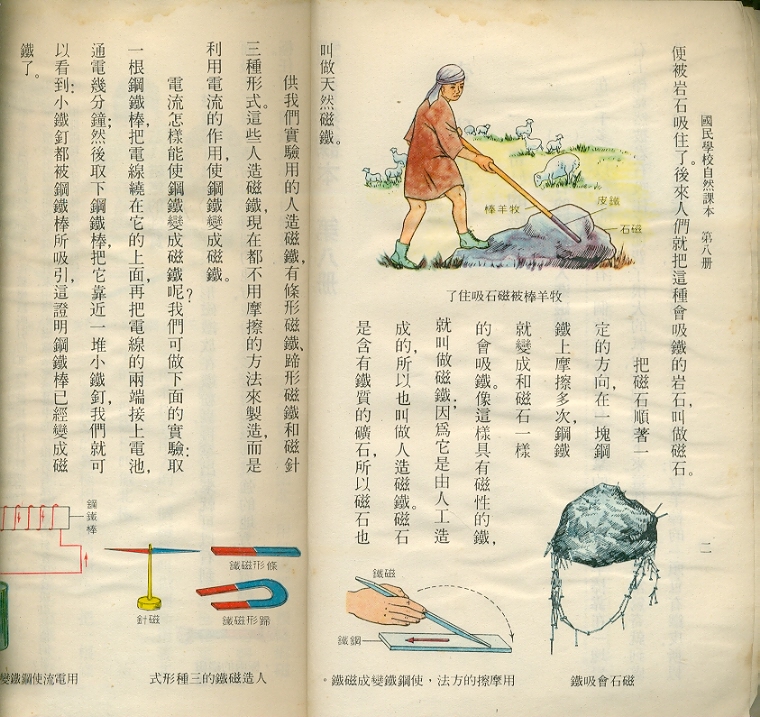 國民學校自然課本 第八册
二
便被岩石吸住了。後來人們就把這種會吸鐵的岩石，叫做磁石。
牧羊棒
鐵皮
磁石
牧羊棒被磁石吸住了
把磁石順著一
定的方向，在一塊鋼
鐵上摩擦多次，鋼鐵
就變成和磁石一樣
的會吸鐵。像這樣具有磁性的鐵，
就叫做磁鐵；因爲它是由人工造
成的，所以也叫做人造磁鐵。磁石
是含有鐵質的礦石，所以磁石也
叫做天然磁鐵。
磁石會吸鐵
磁鐵
鋼鐵
用摩擦的方法，使鋼鐵變成磁鐵。
供我們實驗用的人造磁鐵，有條形磁鐵、蹄形磁鐵和磁針
三種形式。這些人造磁鐵，現在都不用摩擦的方法來製造，而是
利用電流的作用，使鋼鐵變成磁鐵。
電流怎樣能使鋼鐵變成磁鐵呢？我們可做下面的實驗：取
一根鋼鐵棒，把電線繞在它的上面，再把電線的兩端接上電池，
通電幾分鐘；然後取下鋼鐵棒，把它靠近一堆小鐵釘，我們就可
以看到：小鐵釘都被鋼鐵棒所吸引，這證明鋼鐵棒已經變成磁
鐵了。
條形磁鐵
蹄形磁鐵
磁針
人造磁鐵的三種形式
鋼鐵棒
用電流使鋼鐵變